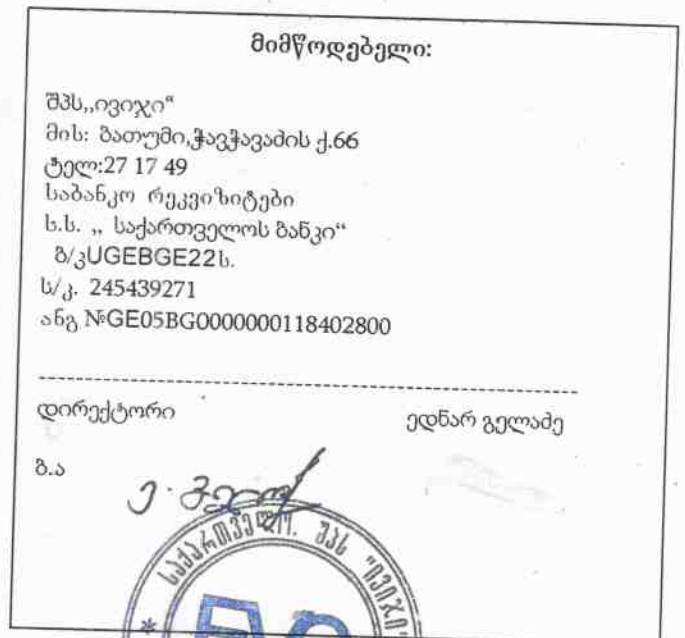 მიმწოდებელი:
შპს,,ივიჯი“
მის: ბათუმი,ჭავჭავაძის ქ.66
ტელ:27 17 49
საბანკო რეკვიზიტები
ს.ს. ,, საქართველოს ბანკი“
ბ/კUGEBGE22ს.
ს/კ. 245439271
ანგ №GE05BG0000000118402800
დირექტორი ედნარ გელაძე
ბ.ა
საქართველო. შპს "ივიჯი"